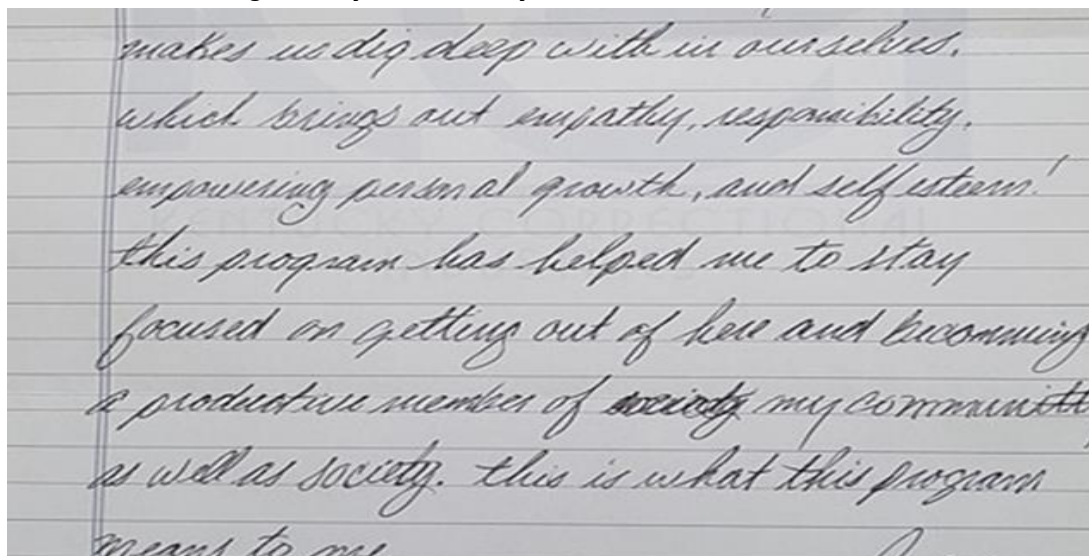 makes us dig deep with in ourselves.
which brings out empathy, responsibility,
empowering personal growth, and self esteem!
KENTUCKY CORRECTIONAL
this program has helped me to stay
focused on getting out of here and becomming
a productive member of society my communit
as well as society. this is what this program
means to me